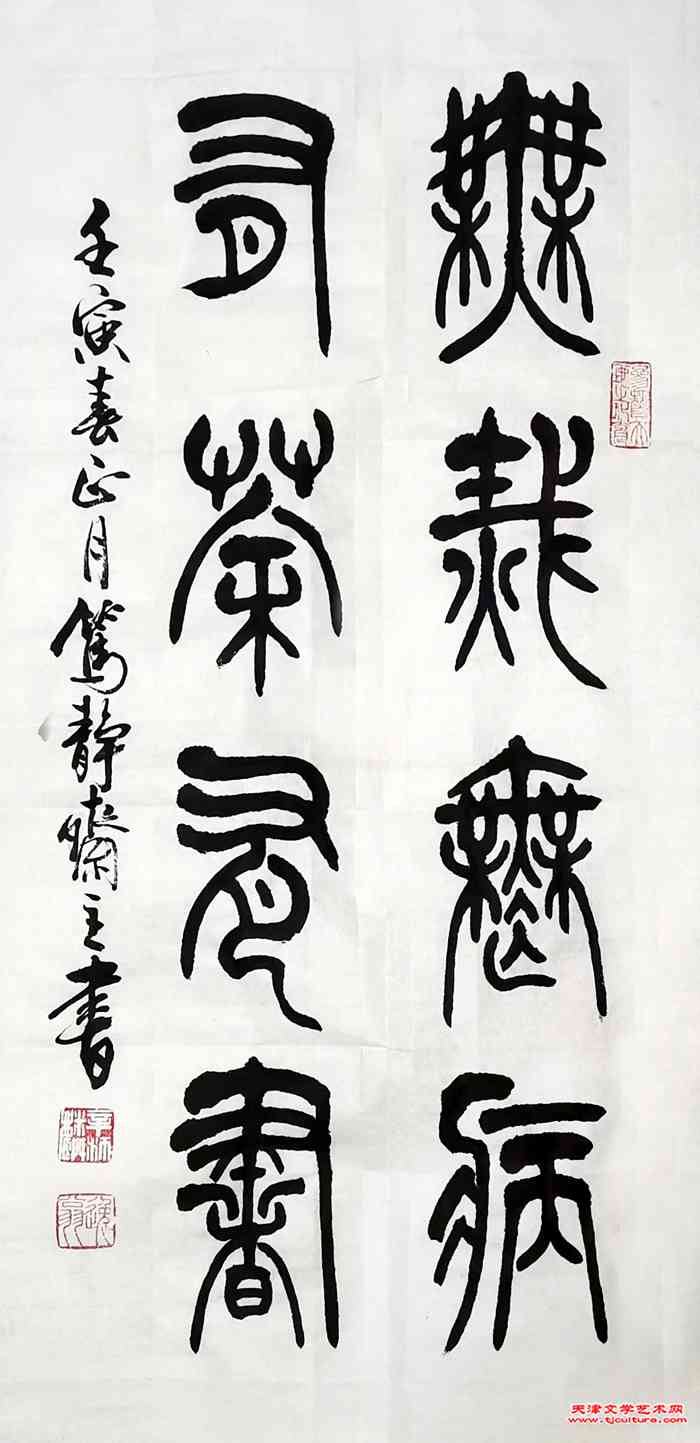 無裁無病
有茶有書
壬寅春正月篤靜齋主書
天津文学艺术网
www.tjculture.com